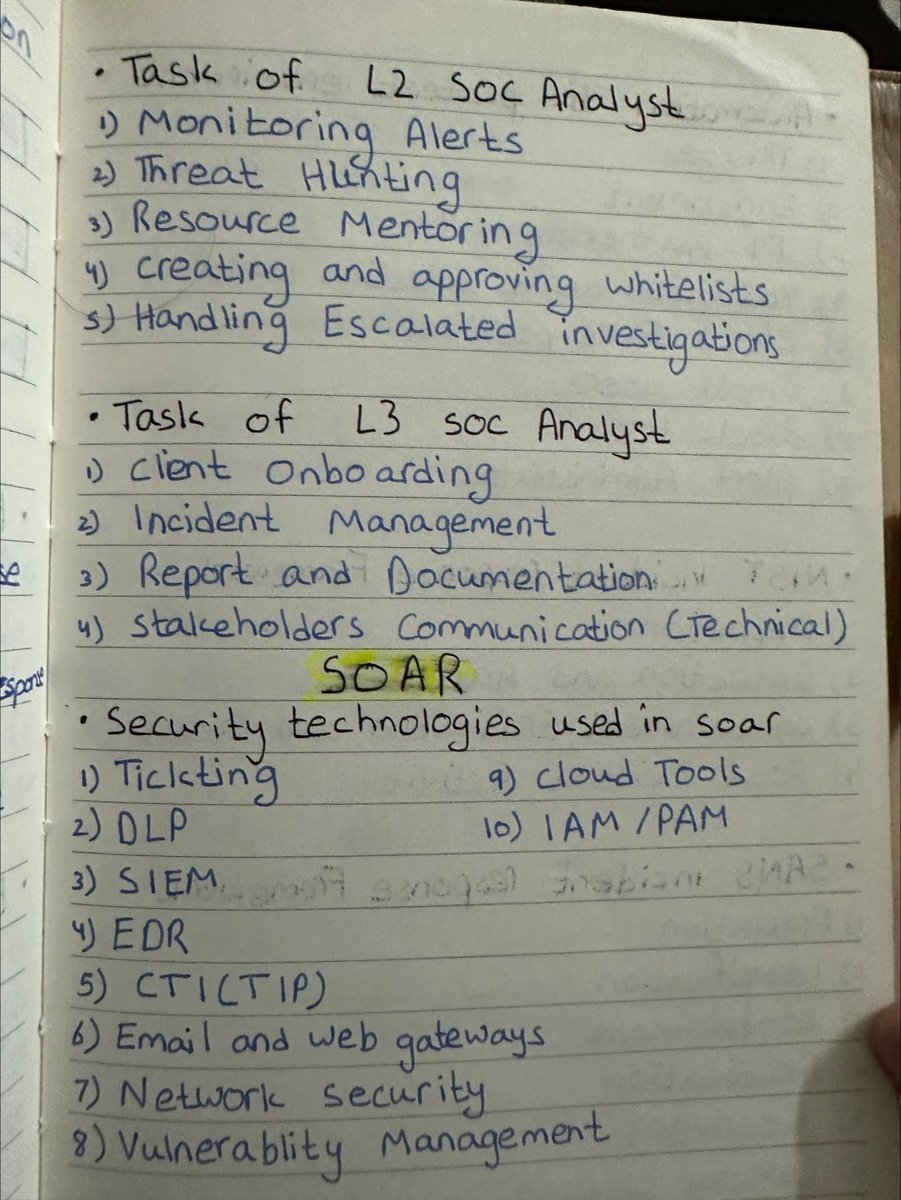 on
• Task of L2 SOC Analyst
1) Monitoring Alerts
2) Threat Hunting
3) Resource Mentoring
4) creating and approving whitelists
5) Handling Escalated investigations
• Task of L3 SOC Analyst
1) Client Onboarding
2) Incident Management
3) Report and Documentation
4) Stakeholders Communication (Technical)
se
SOAR
esponse
• Security technologies used in soar
1) Tickting
9) Cloud Tools
2) DLP
10) IAM / PAM
3) SIEM
4) EDR
5) CTI (TIP)
6) Email and web gateways
7) Network security
8) Vulnerablity Management